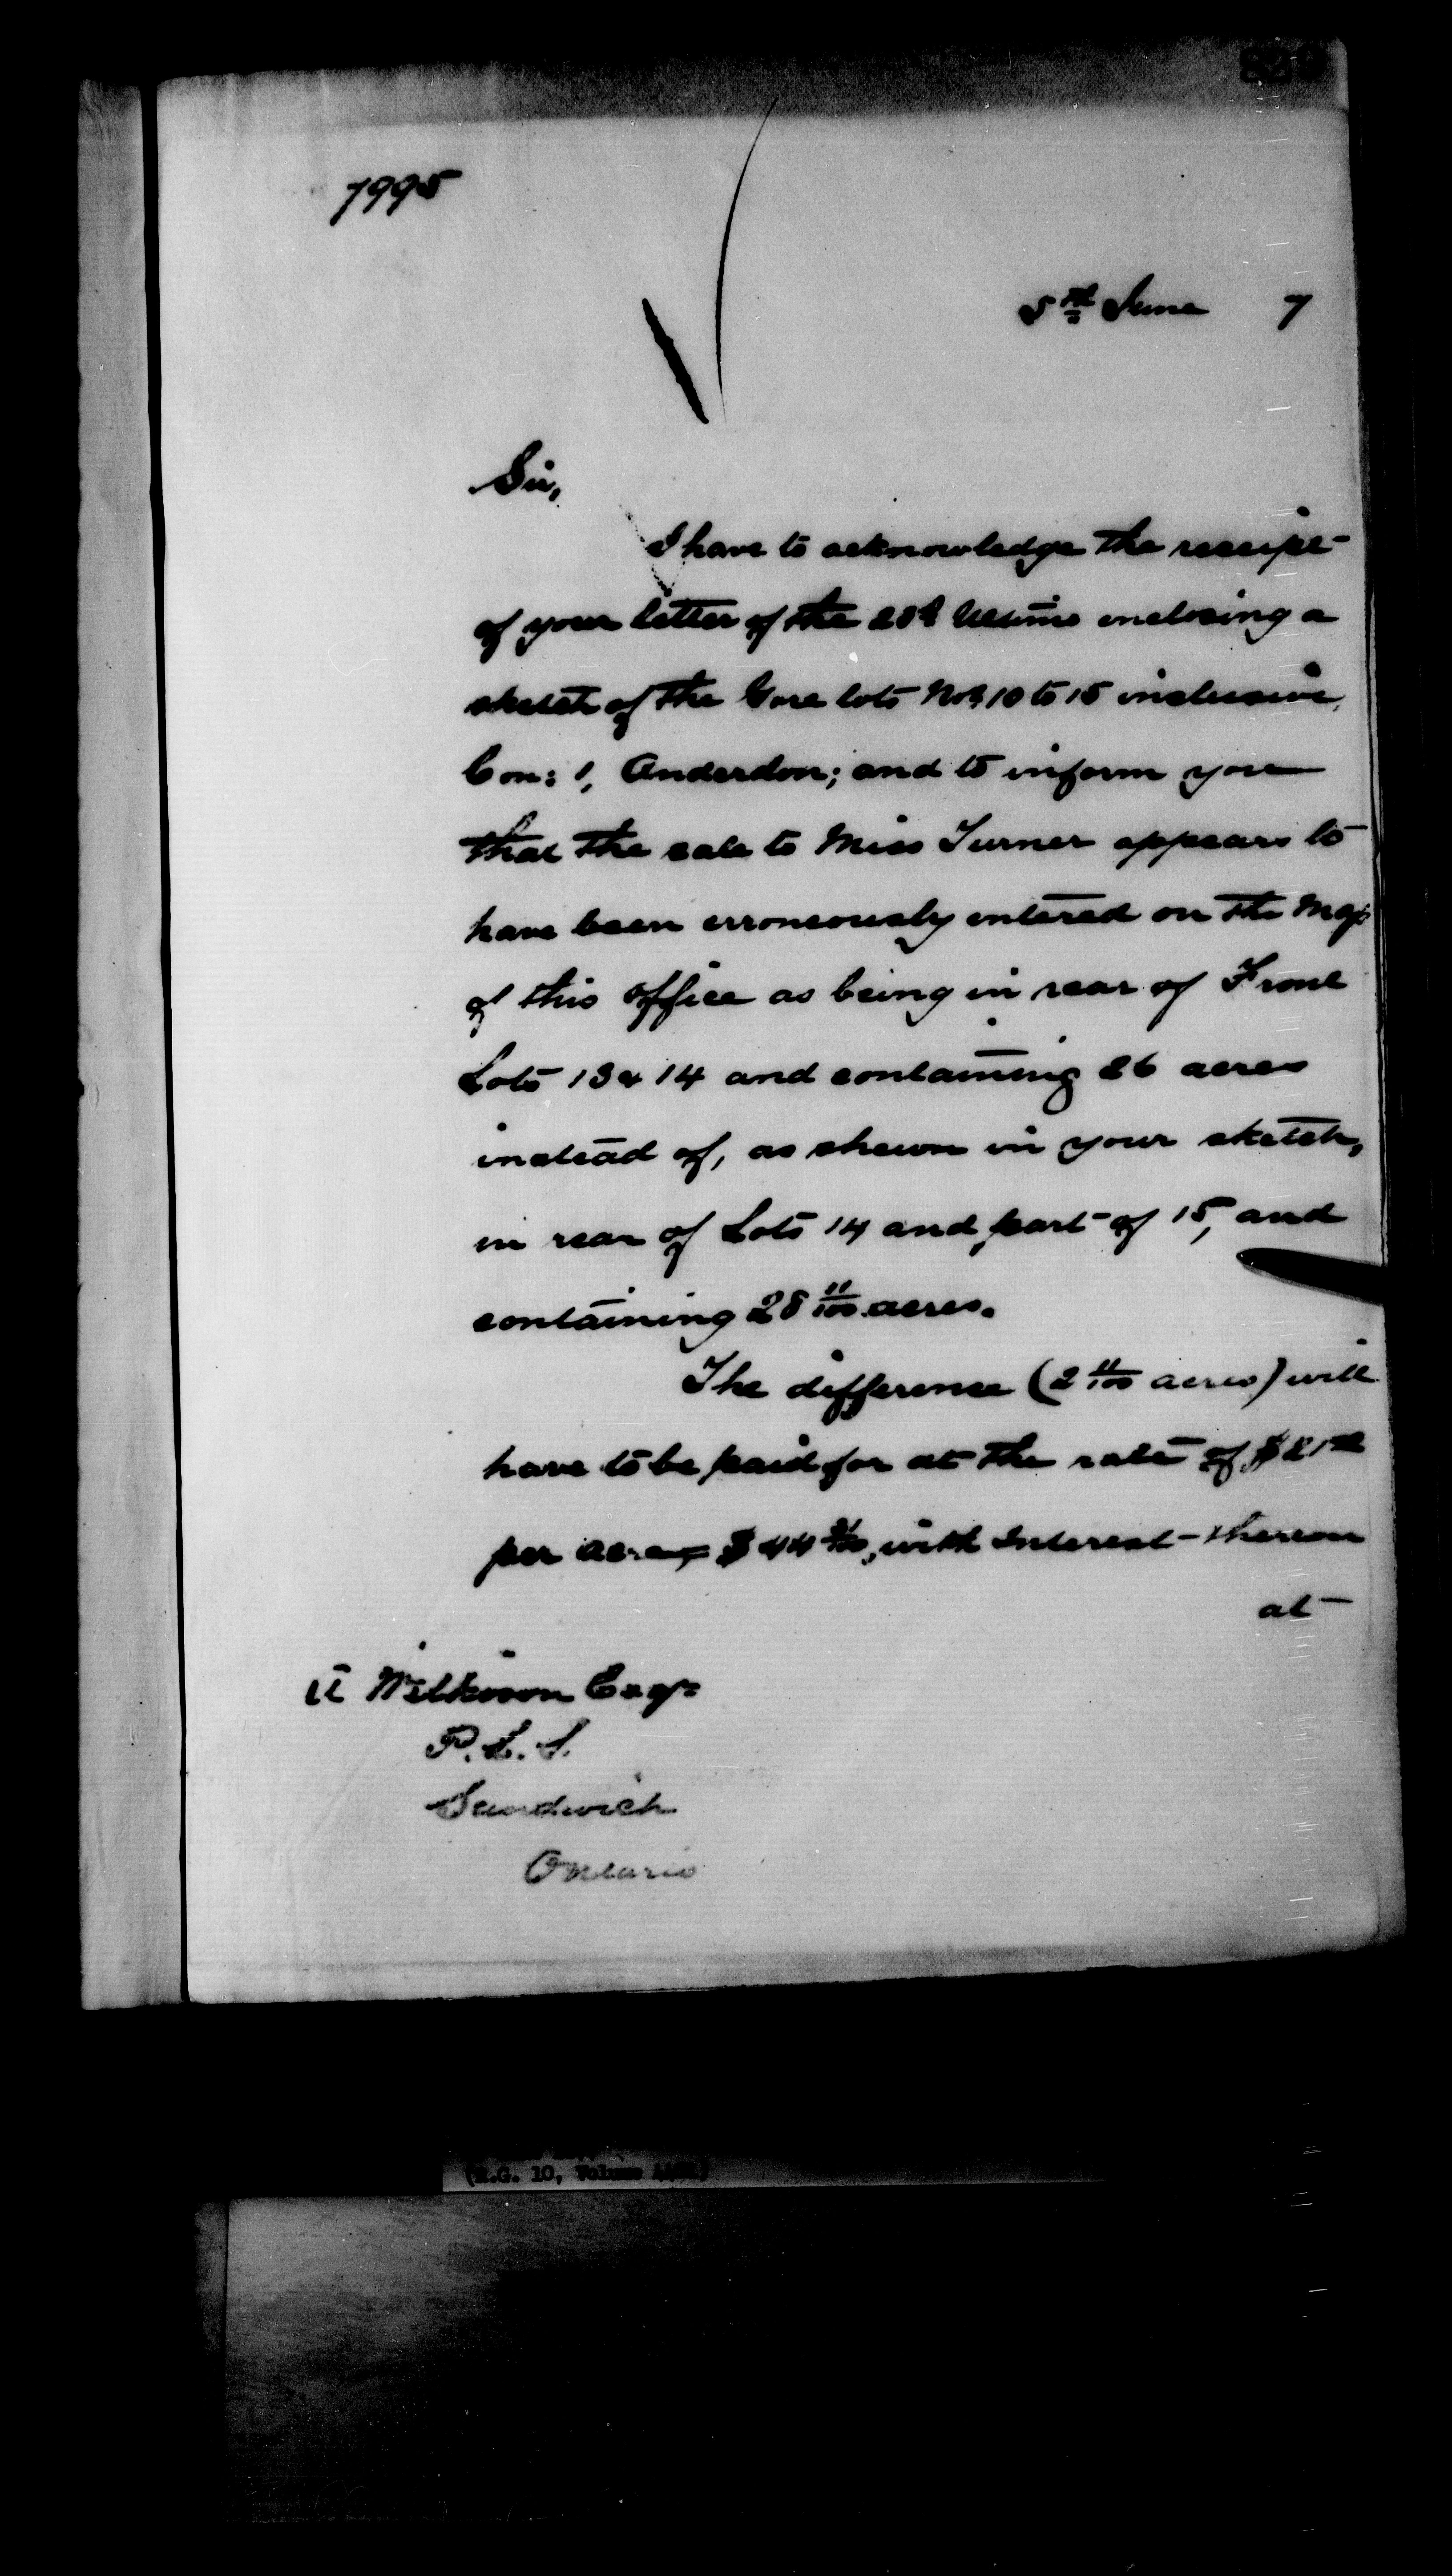 7995
5th June 7
Sir,
I have to acknowledge the receipt
of your letter of the 28th Ultimo enclosing a
sketch of the Gore lots Nos 10 to 15 inclusive,
Con: 1, Anderdon; and to inform you
that the sale to Miss Turner appears to
have been erroneously entered on the Map
of this office as being in rear of Front
Lots 13 & 14 and containing 26 acres
instead of, as shewn in your sketch,
in rear of Lots 14 and part of 15, and
containing 28 11/100 acres.
The difference (2 11/100 acres) will
have to be paid for at the rate of $21
per acre, $44 31/100, with Interest thereon
at
A Wilkinson Esqr
P.L.S.
Sandwich
Ontario
(R.G. 10, Volume